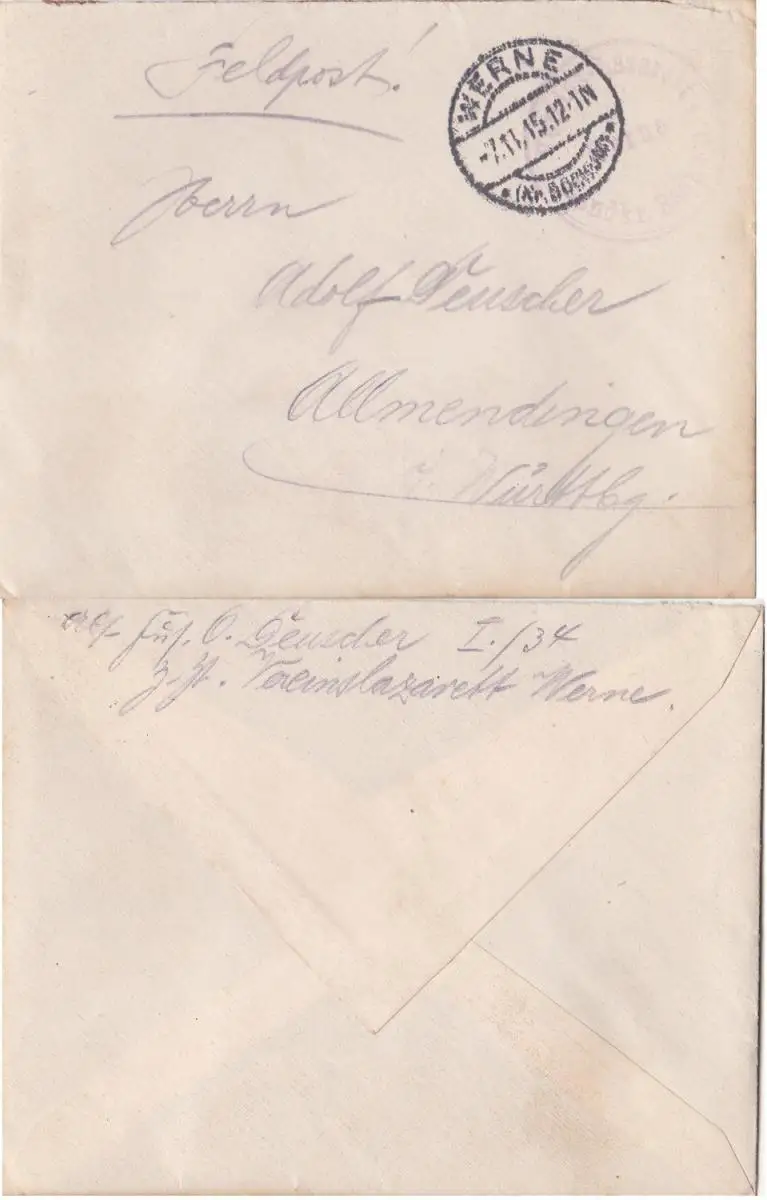 Feldpost!
WERNE
-7.11.15.12-1N
* (Kr. BOCHUM) *
Herrn
Adolf Deuscher
Allmendingen
i. Württbg.
Füs. O. Deuscher I./34
z. Zt. Vereinslazarett Werne.